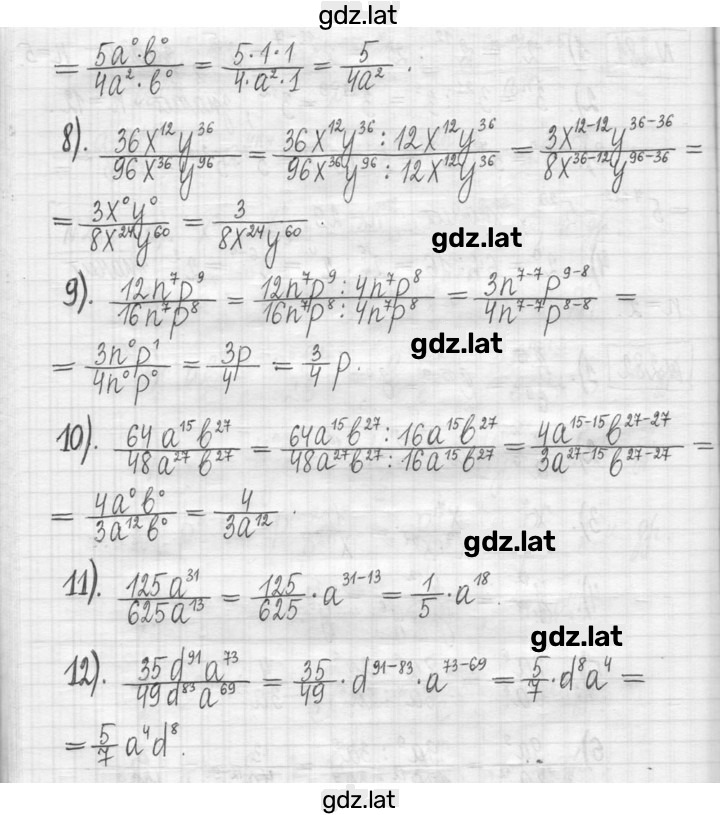 gdz.lat
= 5a⁰·b⁰/4a²·b⁰ = 5·1·1/4·a²·1 = 5/4a².
8). 36x¹²y³⁶/96x³⁶y⁹⁶ = 36x¹²y³⁶ : 12x¹²y³⁶/96x³⁶y⁹⁶ : 12x¹²y³⁶ = 3x¹²⁻¹²y³⁶⁻³⁶/8x³⁶⁻¹²y⁹⁶⁻³⁶ =
= 3x⁰y⁰/8x²⁴y⁶⁰ = 3/8x²⁴y⁶⁰.
gdz.lat
9). 12n⁷p⁹/16n⁷p⁸ = 12n⁷p⁹ : 4n⁷p⁸/16n⁷p⁸ : 4n⁷p⁸ = 3n⁷⁻⁷p⁹⁻⁸/4n⁷⁻⁷p⁸⁻⁸ =
gdz.lat
= 3n⁰p¹/4n⁰p⁰ = 3p/4 = 3/4 p.
10). 64a¹⁵b²⁷/48a²⁷b²⁷ = 64a¹⁵b²⁷ : 16a¹⁵b²⁷/48a²⁷b²⁷ : 16a¹⁵b²⁷ = 4a¹⁵⁻¹⁵b²⁷⁻²⁷/3a²⁷⁻¹⁵b²⁷⁻²⁷ =
= 4a⁰b⁰/3a¹²b⁰ = 4/3a¹².
gdz.lat
11). 125a³¹/625a¹³ = 125/625 · a³¹⁻¹³ = 1/5 · a¹⁸.
gdz.lat
12). 35d⁹¹a⁷³/49d⁸³a⁶⁹ = 35/49 · d⁹¹⁻⁸³ · a⁷³⁻⁶⁹ = 5/7 · d⁸a⁴ =
= 5/7 a⁴d⁸.
gdz.lat